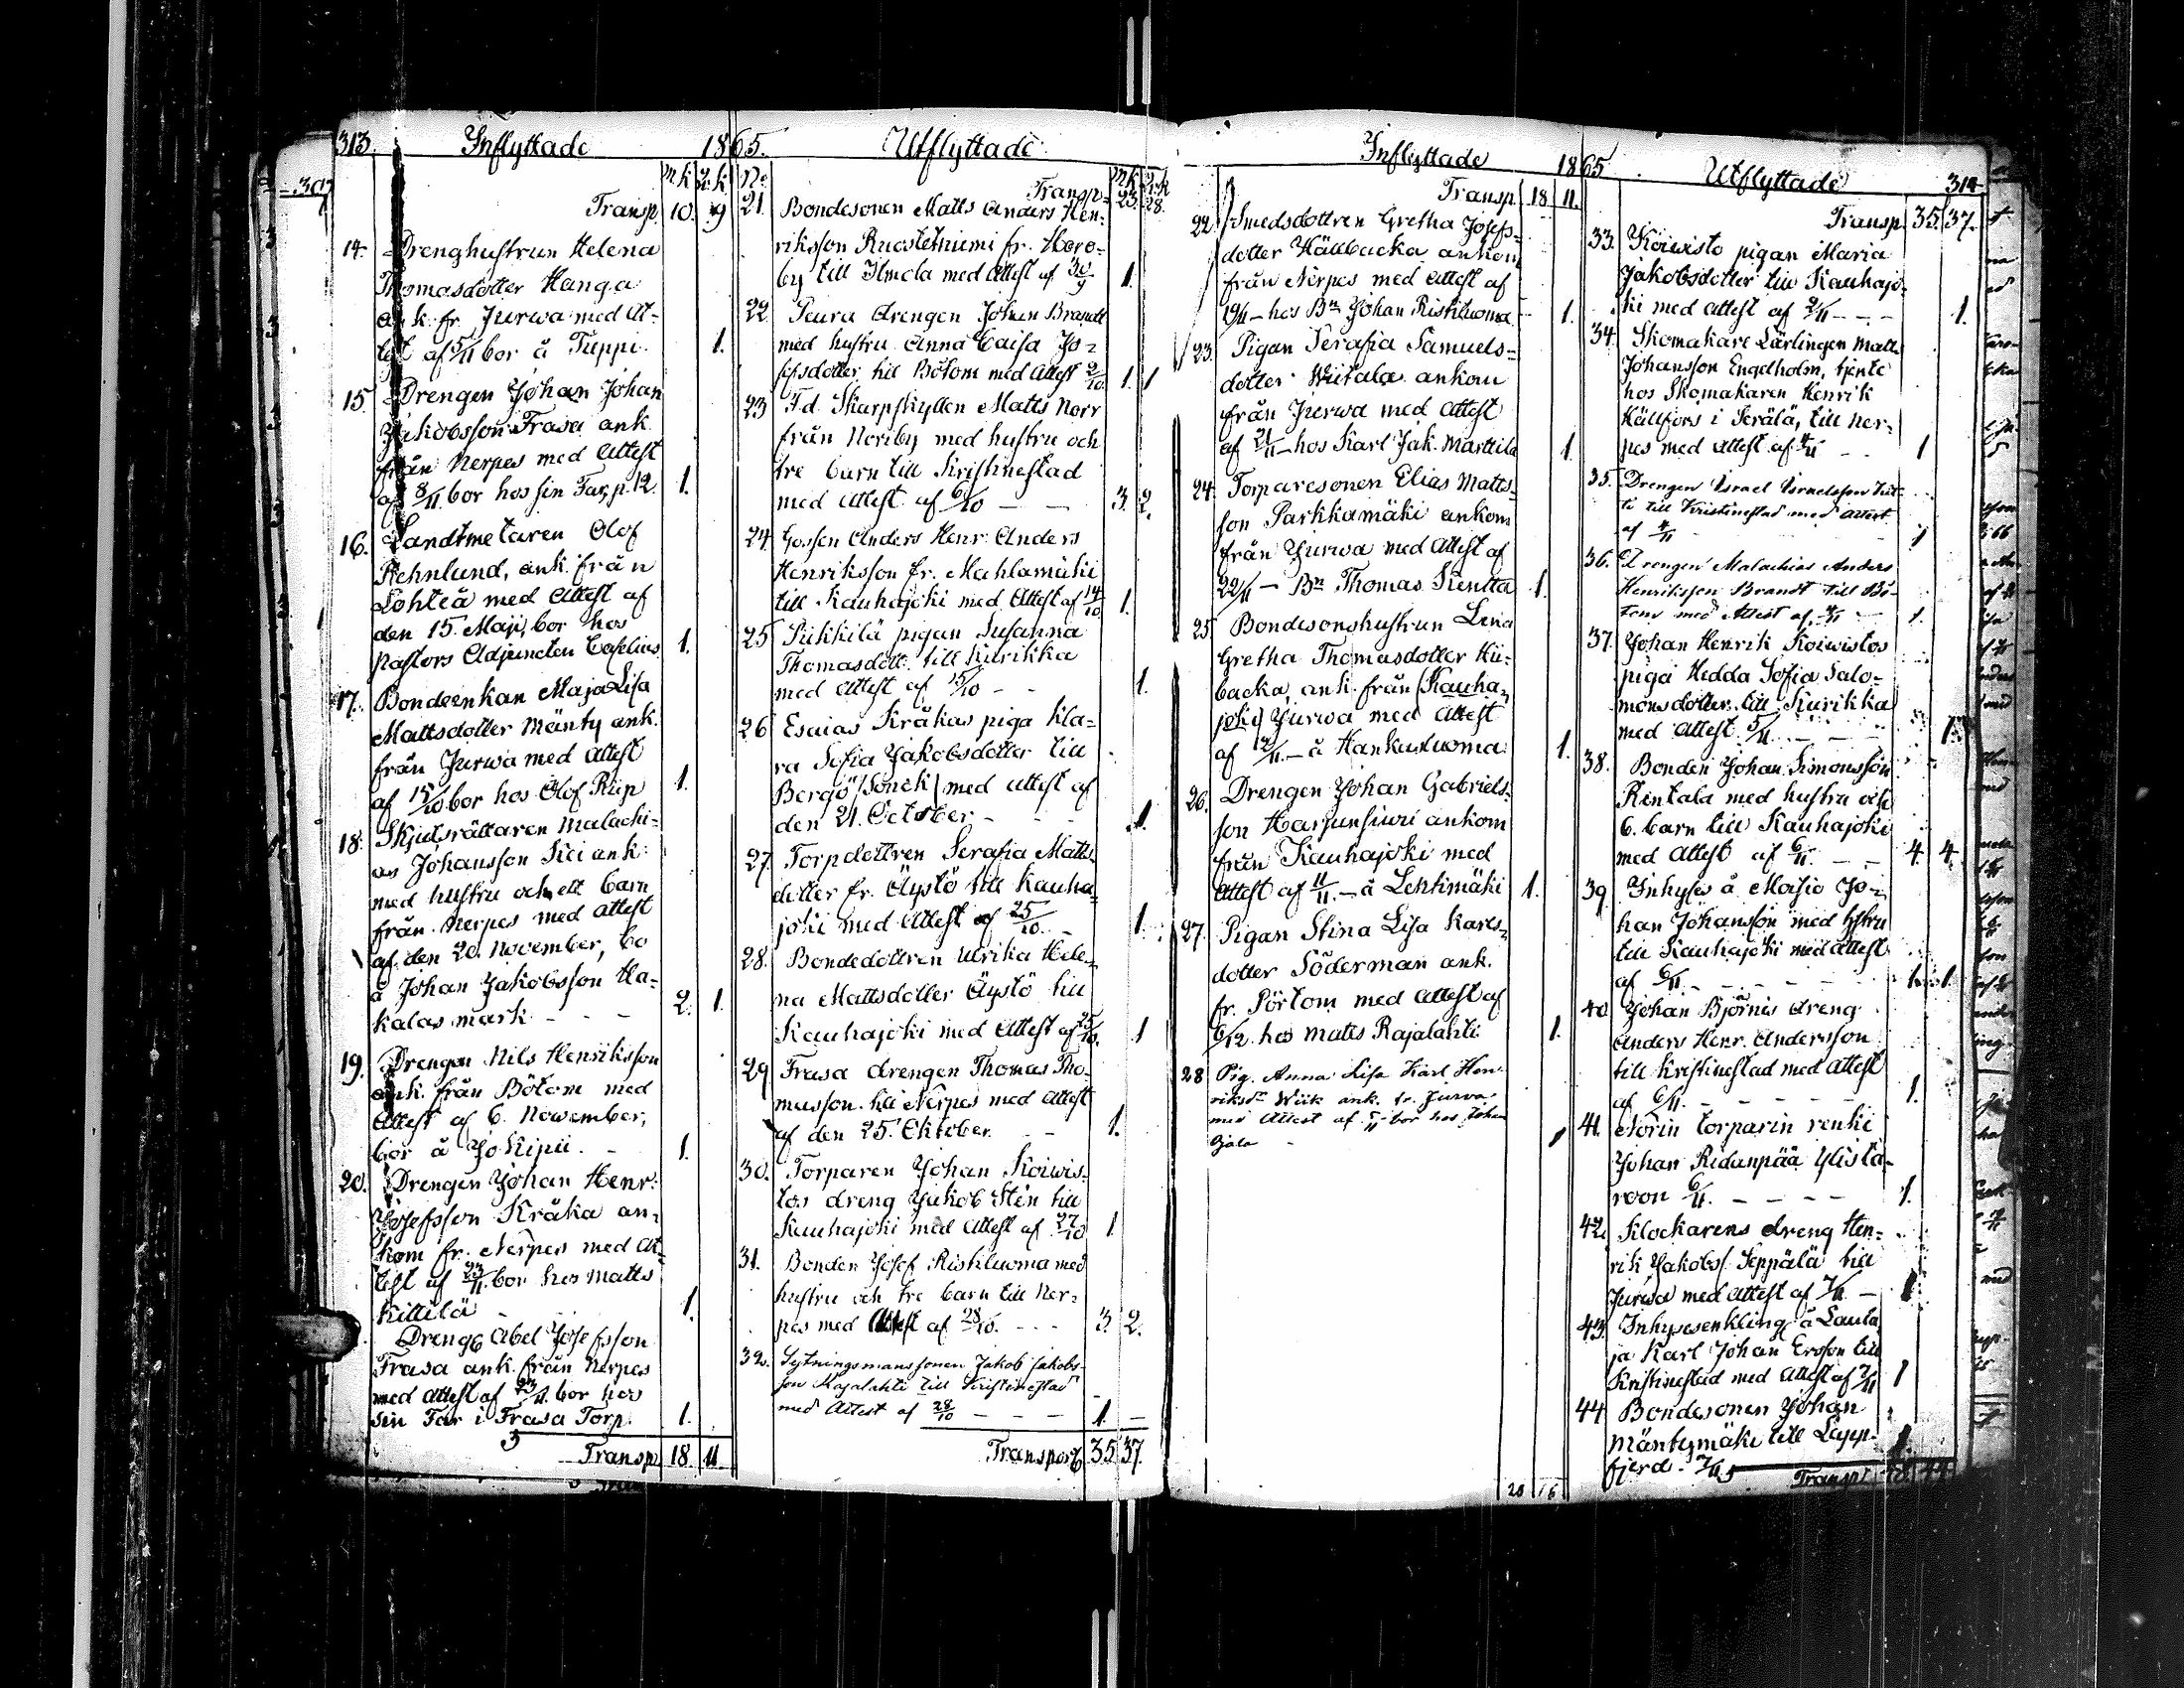 313. Inflyttade 1865. Utflyttade
mk qk
Transp. 10. 9
14. Drenghustrun Helena
Thomasdotter Hanga
ank. fr. Jurwa med At-
test af 5/11 bor å Tuppi. 1.
15. Drengen Johan Johan
Jakobsson Frasa ank.
från Nerpes med Attest
af 8/11 bor hos sin Far, p. 12. 1.
16. Landtmetaren Olof
Rehnlund, ank. från
Lohteå med Attest af
den 15. Maji, bor hos
Pastors Adjuncten 1.
17. Bondeenkan Maja Lisa
Mattsdotter Mänty ank.
från Jurwa med Attest
af 15/10 bor hos Olof Riip 1.
18. Skjutsrättaren Malachi-
as Johansson Koi ank.
med hustru och ett barn
från Nerpes med Attest
af den 20. November, bo
å Johan Jakobsson Ha-
kalas mark - - - 2. 1.
19. Drengen Nils Henriksson
ank. från Bötom med
Attest af 6. November,
bor å Jokipii. - 1.
20. Drengen Johan Henr.
Josefsson Kråka an-
kom fr. Nerpes med At-
test af 23/11 bor hos Matts
Kittilä - 1.
Dreng Abel Josefsson
Frasa ank. från Nerpes
med Attest af 23/11 bor hos
sin Far i Frasa Torp. 1.
Transp 18. 11.
No mk qk
Transp. 23. 28.
21. Bondesonen Matts Anders Hen-
riksson Ruostetniemi fr. Horo-
by till Ilmola med Attest af 30/9 1.
22. Peura drengen Johan Brandt
med hustru Anna Caisa Jo-
sefsdotter till Bötom med Attest 2/10 1. 1
23 Fd. Skarpskytten Matts Norr
från Norrby med hustru och
tre barn till Kristinestad
med Attest af 6/10 - - 3. 2.
24. Gossen Anders Henr. Anders
Henriksson fr. Mahlamäki
till Kauhajoki med Attest af 14/10. 1.
25 Pikkilä pigan Susanna
Thomasdott. till Kurikka
med Attest af 15/10 - - 1.
26 Esaias Kråkas piga Kla-
ra Sofia Jakobsdotter till
Bergö med Attest af
den 21. October - - 1.
27. Torpdottren Serafia Matts-
dotter fr. Äystö till Kauha-
joki med Attest af 25/10. - 1.
28. Bondedottren Ulrika Hele-
na Mattsdotter Äystö till
Kauhajoki med Attest af 25/10. 1
29 Frasa drengen Thomas Tho-
masson till Nerpes med Attest
af den 25. Oktober. - 1.
30. Torparen Johan Koiwis-
tos dreng Jakob Stén till
Kauhajoki med Attest af 27/10 1
31. Bonden Josef Ristiluoma med
hustru och tre barn till Ner-
pes med Attest af 28/10. - - - 3. 2.
32. Sytningsmanssonen Jakob Jakobs-
son Rajalahti till Kristinestad
med Attest af 28/10 - - - 1. -
Transport 35 37.
Inflyttade 1865 Utflyttade 314
Transp. 18 11.
22. Smedsdottren Gretha Josefs-
dotter Hällbacka ankom
från Nerpes med Attest af
19/11 - hos Bn Johan Ristiluoma. 1.
23. Pigan Serafia Samuels-
dotter Wiitala ankom
från Jurwa med Attest
af 21/11 - hos Karl Jak. Marttila 1.
24. Torparesonen Elias Matts-
son Parkkamäki ankom
från Jurwa med Attest af
22/11 - Bn Thomas Kentta 1.
25 Bondesonshustrun Lina
Gretha Thomasdotter Hii-
backa ank. från (Kauha-
joki) Jurwa med Attest
af - å Hankuluoma 1.
26. Drengen Johan Gabriels-
son Harjunsiuri ankom
från Kauhajoki med
Attest af 11/11. - å Lehtimäki 1.
27. Pigan Stina Lisa Karls-
dotter Söderman ank.
fr. Pörtom med Attest af
6/12. hos Matts Rajalahti 1.
28 Pig. Anna Lisa Karl Hen-
riksdr Wiik ank. fr. Jurva
med Attest af 5/11 bor hos Johan
- 1
20 16
Transp. 35. 37.
33. Koiwisto pigan Maria
Jakobsdotter till Kauhajo-
ki med Attest af 2/11 - - - 1.
34. Skomakare Lärlingen Matts
Johansson Engelholm, tjente
hos Skomakaren Henrik
Källfors i Perälä, till Ner-
pes med Attest af 4/11 - - 1
35. Drengen Israel Israelsson
till Kristinestad med Attest
af 4/11 - 1
36. Drengen Malachias Anders
Henriksson Brandt till Bö-
tom med Attest af 4/11 - 1.
37. Johan Henrik Koiwistos
piga Hedda Sofia Salo-
monsdotter till Kurikka
med Attest 5/11. - - - 1
38. Bonden Johan Simonsson
Rintala med hustru och
6. barn till Kauhajoki
med Attest af 6/11. - - 4 4.
39. Inhyses å Mosio Jo-
han Johansson med hstru
till Kauhajoki med Attest
af 6/11. - - - - - 1. 1.
40 Johan Björnis dreng
Anders Henr. Andersson
till Kristinestad med Attest
af 6/11. - - - - - 1.
41. Norin torparin renki
Johan Ridanpää Ylista-
roon 6/11. - - - - 1.
42. Klockarens dreng Hen-
rik Jakobs. Seppälä till
Jurwa med Attest af 7/11. - 1
43. Inhysesenkling å Lauta-
ja Karl Johan Ersson till
Kristinestad med Attest af 7/11 1
44 Bondesonen Johan
Mäntymäki till Lapp-
fjerd. 7/11 1.
Transp. 44.